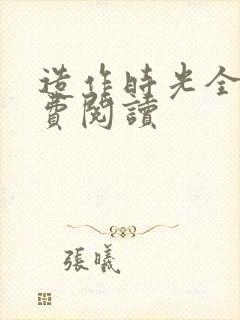 造作時光全
費閱讀
張曦